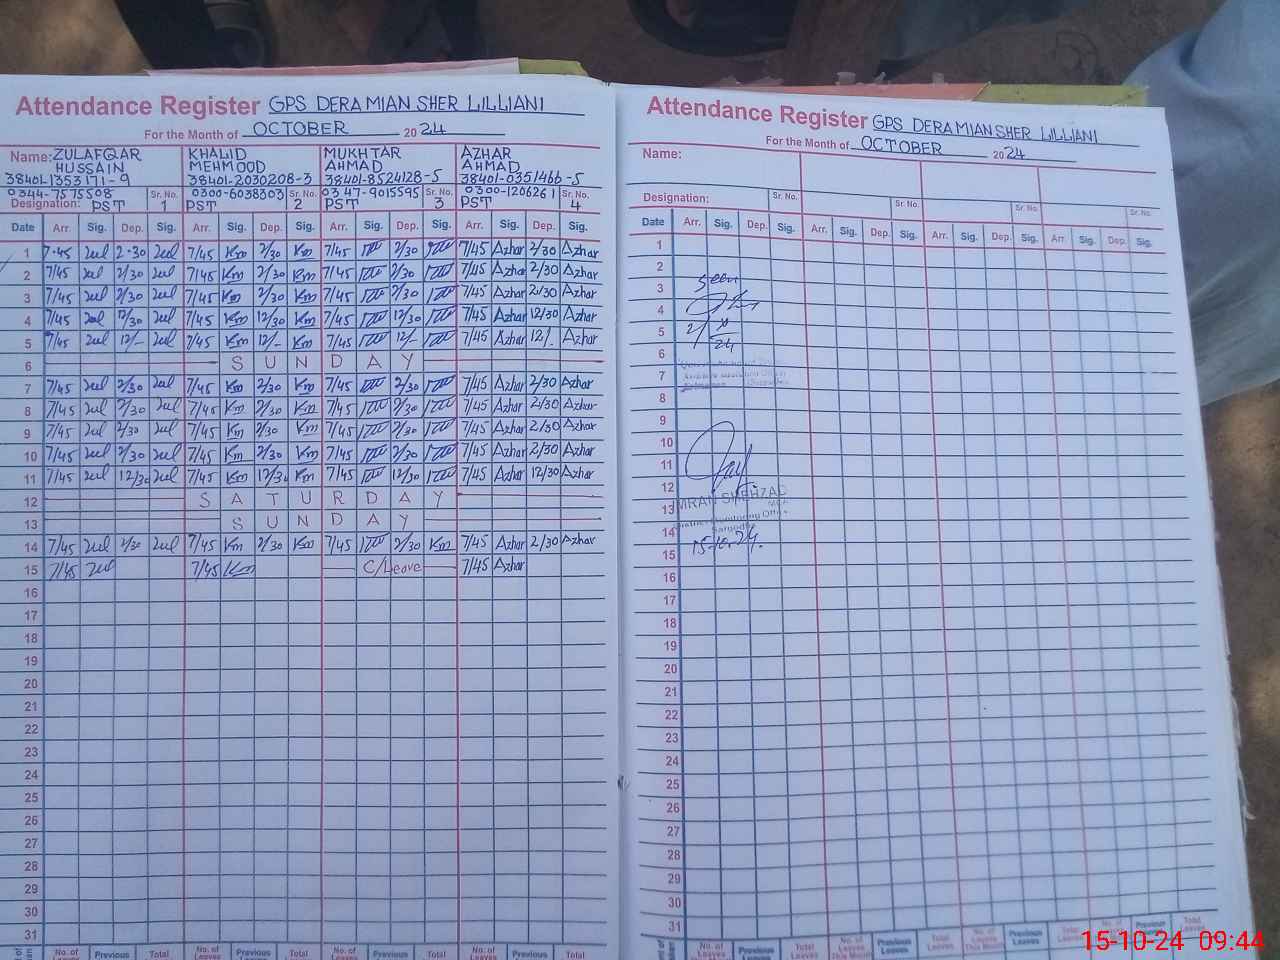 Attendance Register GPS DERA MIAN SHER LILLIANI
For the Month of OCTOBER 2024
Name: ZULAFQAR HUSSAIN 38401-1353171-9
0344-7575508
Designation: PST Sr. No. 1
KHALID MEHMOOD 38401-2030208-3
0300-6038303
PST Sr. No. 2
MUKHTAR AHMAD 38401-8524128-5
0347-9015595
PST Sr. No. 3
AZHAR AHMAD 38401-0351466-5
0300-1206261
PST Sr. No. 4
Date Arr. Sig. Dep. Sig. Arr. Sig. Dep. Sig. Arr. Sig. Dep. Sig. Arr. Sig. Dep. Sig.
1 7-45 2-30 7/45 Km 2/30 Km 7/45 2/30 7/45 Azhar 2/30 Azhar
2 7/45 2/30 7/45 Km 2/30 Km 7/45 2/30 7/45 Azhar 2/30 Azhar
3 7/45 2/30 7/45 Km 2/30 Km 7/45 2/30 7/45 Azhar 2/30 Azhar
4 7/45 12/30 7/45 Km 12/30 Km 7/45 12/30 7/45 Azhar 12/30 Azhar
5 7/45 12/- 7/45 Km 12/- Km 7/45 12/- 7/45 Azhar 12/. Azhar
6 SUNDAY
7 7/45 2/30 7/45 Km 2/30 Km 7/45 2/30 7/45 Azhar 2/30 Azhar
8 7/45 2/30 7/45 Km 2/30 Km 7/45 2/30 7/45 Azhar 2/30 Azhar
9 7/45 2/30 7/45 Km 2/30 Km 7/45 2/30 7/45 Azhar 2/30 Azhar
10 7/45 2/30 7/45 Km 2/30 Km 7/45 2/30 7/45 Azhar 2/30 Azhar
11 7/45 12/30 7/45 Km 12/30 Km 7/45 12/30 7/45 Azhar 12/30 Azhar
12 SATURDAY
13 SUNDAY
14 7/45 2/30 7/45 Km 2/30 Km 7/45 2/30 Km 7/45 Azhar 2/30 Azhar
15 7/45 7/45 Km C/Leave 7/45 Azhar
16
17
18
19
20
21
22
23
24
25
26
27
28
29
30
31
No. of Leaves Previous Total No. of Leaves Previous Total No. of Leaves Previous Total No. of Leaves Previous Total
Attendance Register GPS DERA MIAN SHER LILLIANI
For the Month of OCTOBER 2024
Name:
Designation: Sr. No. Sr. No. Sr. No. Sr. No.
Date Arr. Sig. Dep. Sig. Arr. Sig. Dep. Sig. Arr. Sig. Dep. Sig. Arr. Sig. Dep. Sig.
1
2
3 Seen
4
5
6
7
8
9
10
11
12
IMRAN SHEHZAD
13
District Monitoring Officer
14 Sargodha
15 15-10-24.
16
17
18
19
20
21
22
23
24
25
26
27
28
29
30
31
No. of Leaves Previous Leaves Total Leaves No. of Leaves This Month Previous Leaves Total Leaves No. of Leaves This Month Previous Leaves Total Leaves Previous Leaves Total Leaves
15-10-24 09:44